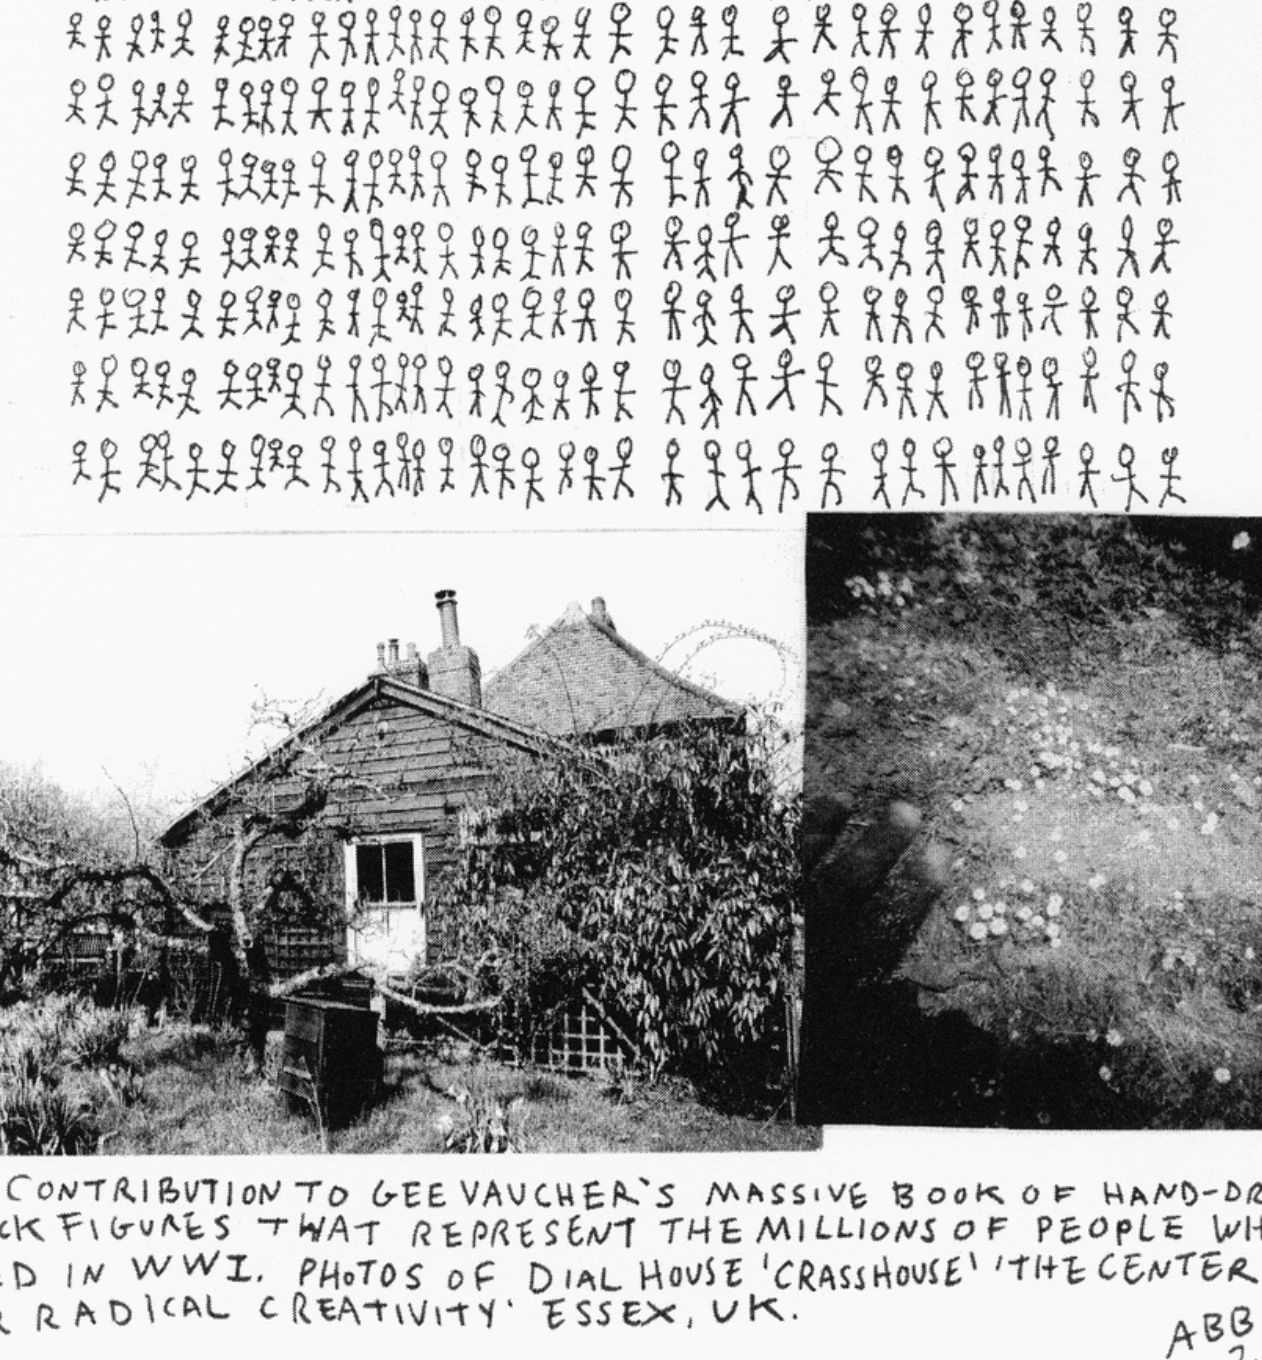 CONTRIBUTION TO GEE VAUCHER'S MASSIVE BOOK OF HAND-DR
CK FIGURES THAT REPRESENT THE MILLIONS OF PEOPLE WH
ED IN WWI. PHOTOS OF DIAL HOUSE 'CRASSHOUSE' 'THE CENTER
R RADICAL CREATIVITY' ESSEX, UK.
ABB